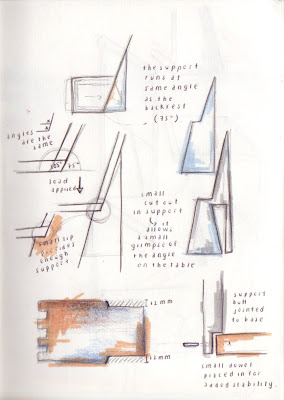 the support
runs at
same angle
as the
backrest
(75°)
angles
are the
same
75°
load
applied
small
cut out
in support
it
allows
a small
glimpse of
the angle
on the table
small lip
provides
enough
support
12mm
12mm
support
butt
jointed
to base
small dowel
placed in for
added stability.